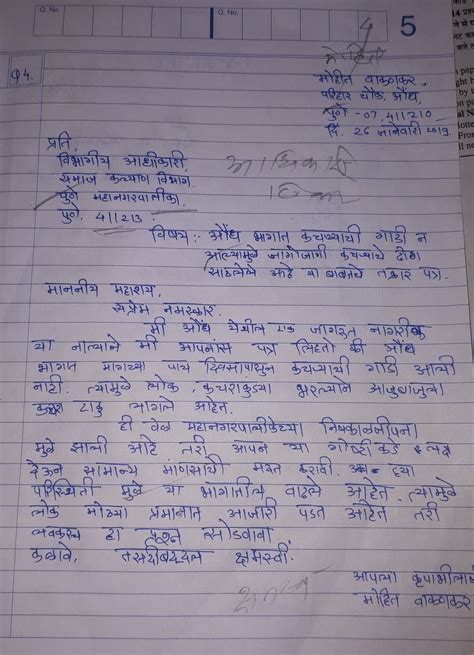 Q. No.
Q. No.
5
Q4.
मोहीत वाकणकर
परिहार चौक, औंध,
पुणे -07. 411210
दि. 26 जानेवारी 2019.
प्रति,
विभागीय अधीकारी,
समाज कल्याण विभाग,
पुणे महानगरपालीका,
पुणे. 411213.
विषय :- औंध भागात कचऱ्याची गाडी न
आल्यामुळे जागोजागी कचऱ्याचे ढीग
साठलेले आहे या बाबतचे तक्रार पत्र.
माननीय महाशय,
सप्रेम नमस्कार.
मी औंध येथील एक जागरूत नागरीक
या नात्याने मी आपनांस पत्र लिहतो की औंध
भागात मागच्या पाच दिवसापासून कचऱ्याची गाडी आली
नाही. त्यामुळे लोक, कचराकुंड्या भरल्याने आजुबाजुला
कचरा टाकु लागले आहेत.
ही वेळ महानगरपालीकेच्या निष्काळजीपना
मुळे झाली आहे तरी आपन या गोष्टीकडे लक्ष
देऊन सामान्य माणसाची मदत करावी. ह्या
परिस्थिती मुळे या भागातील वाढले आहेत. त्यामुळे
लोक मोठ्या प्रमानात आजारी पडत आहेत तरी
लवकरच हा प्रश्न सोडवावा
कळावे, तसदीबद्दल क्षमस्वी.
आपला कृपाभीलाषी
मोहित वाकणकर